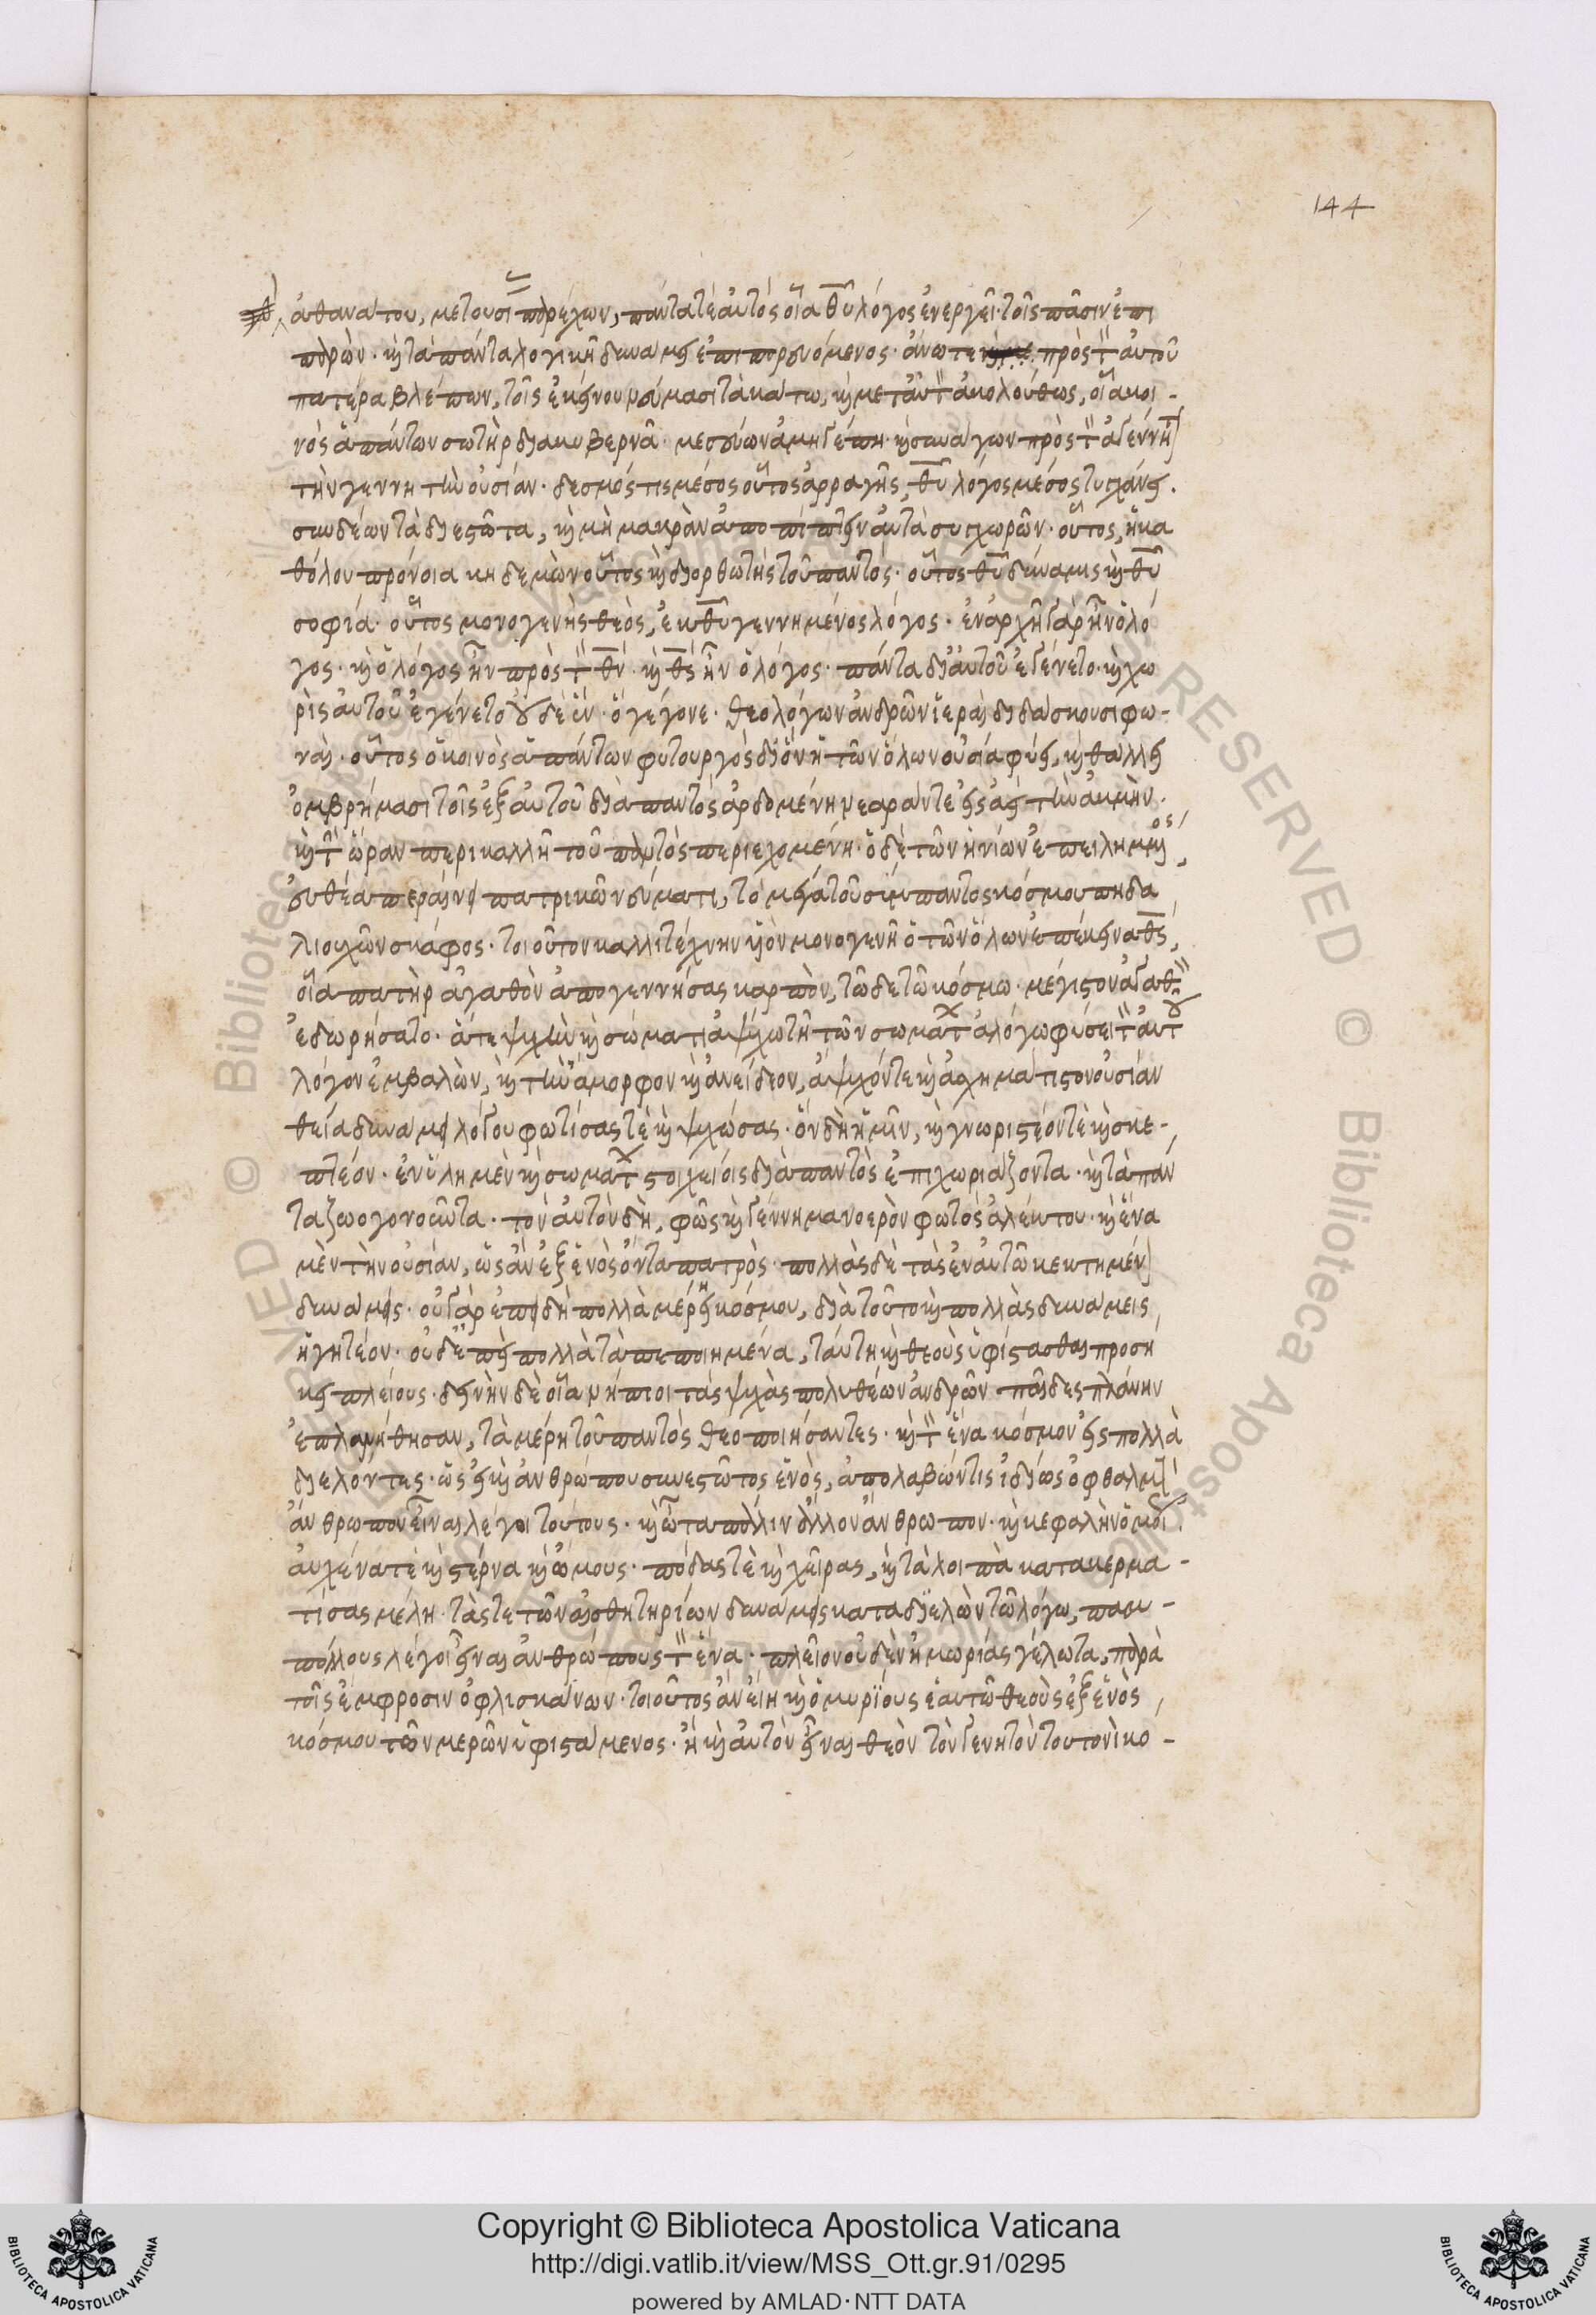 144
ἀθανάτου, μετουσί παρέχων, πάντα τὲ αὐτὸς οἷα θῦ λόγος ἐνεργεῖ· τοῖς πᾶσιν ἐπι
παρών· κ τὰ πάντα λογικῆ δυνάμει ἐπιπορευόμενος· ἄνω τε πρὸς τ αὐτοῦ
πατέρα βλέπων, τοῖς ἐκείνου νεύμασι τὰ κάτω, κ μετ αὐτ ἀκολούθως, οἷα κοι-
νὸς ἁπάντων σωτὴρ διακυβερνᾶ· μεσεύων ἀμηγέπη· κ συνάγων πρὸς τ ἀγέννη
τὴν γεννητὴν οὐσίαν· δεσμός τις μέσος οὗτος ἀρραγὴς, θῦ λόγος μέσος τυγχάνει.
συνδέων τὰ διεστῶτα, κ μὴ μακρὰν ἀποπίπτειν αὐτὰ συγχωρῶν· οὗτος, ἡ κα
θόλου πρόνοια κηδεμὼν οὗτος κ διορθωτὴς τοῦ παντός· οὗτος θῦ δύναμις κ θῦ
σοφία· οὗτος μονογενὴς θεὸς, ἐκ θῦ γεννημένος λόγος· ἐν ἀρχῆ γὰρ ἦν ὁ λό
γος· κ ὁ λόγος ἦν πρὸς τ θν· κ θς ἦν ὁ λόγος· πάντα δι αὐτοῦ ἐγένετο· κ χω
ρὶς αὐτοῦ ἐγένετο οὐδὲ ἕν· ὃ γέγονε· θεολόγων ἀνδρῶν ἱεραὶ διδάσκουσι φω-
ναί· οὗτος ὁ κοινὸς ἁπάντων φυτουργὸς δι ὃν ἡ τῶν ὅλων οὐσία φύει, κ θάλλει
ὀμβρήμασι τοῖς ἐξ αὐτοῦ διὰ παντὸς ἀρδομένη νεαράν τε εἰς ἀεὶ τὴν ἀκμὴν·
κ τ ὥραν περικαλλῆ τοῦ παντὸς περιεχομένη· ὁ δὲ τῶν ἡνιῶν ἐπειλημμένος
εὐθέα περαίνει πατρικῶ νεύματι, τὸ μέγα τοῦ σύμπαντος κόσμου πηδα
λιουχῶν σκάφος· τοιοῦτον καλλιτέχνην υἱὸν μονογενῆ ὁ τῶν ὅλων ἐπέκεινα θς,
οἷα πατὴρ ἀγαθὸν ἀπογεννήσας καρπὸν, τῶδε τῶ κόσμω· μέγιστον ἀγαθ
ἐδωρήσατο· ἅτε ψυχὴν κ σώματι ἀψύχω τῆ τῶν σωμάτ ἀλόγω φύσει τ αὐτ
λόγον ἐμβαλὼν, κ τὴν ἄμορφον κ ἀνείδεον, ἄψυχόν τε κ ἀσχημάτιστον οὐσίαν
θεία δυνάμει λόγου φωτίσας τὲ κ ψυχώσας· ὃν δὴ ἡμῖν, κ γνωριστέον τὲ κ σκε-
πτέον· ἐν ὕλη μὲν κ σωμάτ στοιχείοις διὰ παντὸς ἐπιχωριάζοντα· κ τὰ πάν
τα ζωογονοῦντα· τὸν αὐτὸν δὴ, φῶς κ γέννημα νοερὸν φωτὸς ἀλέκτου· κ ἕνα
μὲν τὴν οὐσίαν, ὡς ἂν ἐξ ἑνὸς ὄντα πατρὸς· πολλὰς δὲ τὰς ἐν αὑτῶ κεκτημέν
δυνάμεις· οὐ γὰρ ἐπειδὴ πολλὰ μέρη κόσμου, διὰ τοῦτο κ πολλὰς δυνάμεις
ἡγητέον· οὐδ ἐπεὶ πολλὰ τὰ πεποιημένα, ταύτη κ θεοὺς ὑφίστασθαι προσή
κει πλείους· δεινὴν δὲ οἷα νήπιοι τὰς ψυχὰς πολυθέων ἀνδρῶν παῖδες πλάνην
ἐπλανήθησαν, τὰ μέρη τοῦ παντὸς θεοποιήσαντες· κ τ ἕνα κόσμον εἰς πολλὰ
διελόντες· ὡς εἰ κ ἀνθρώπου συνεστῶτος ἑνὸς, ἀπολαβών τις ἰδίως ὀφθαλμ
ἄνθρωπον εἶναι λέγοι τούτους· κ ὦτα πάλιν ἄλλον ἄνθρωπον· κ κεφαλὴν ὁμοί.
αὐχένα τὲ κ στέρνα κ ὤμους· πόδας τὲ κ χεῖρας, κ τὰ λοιπὰ κατακερμα-
τίσας μέλη· τάς τε τῶν αἰσθητηρίων δυνάμεις καταδιελὼν τῶ λόγω, παμ-
πόλλους λέγοι εἶναι ἀνθρώπους τ ἕνα· πλεῖον οὐδὲν ἢ μωρίας γέλωτα, παρὰ
τοῖς ἔμφροσιν ὀφλισκάνων· τοιοῦτος ἂν εἴη κ ὁ μυρίους ἑαυτῶ θεοὺς ἐξ ἑνὸς
κόσμου τῶν μερῶν ὑφιστάμενος· ἢ κ αὐτὸν εἶναι θεὸν τὸν γενητὸν τουτονὶ κό-
Copyright © Biblioteca Apostolica Vaticana
http://digi.vatlib.it/view/MSS_Ott.gr.91/0295
powered by AMLAD·NTT DATA
BIBLIOTECA APOSTOLICA VATICANA
BIBLIOTECA APOSTOLICA VATICANA